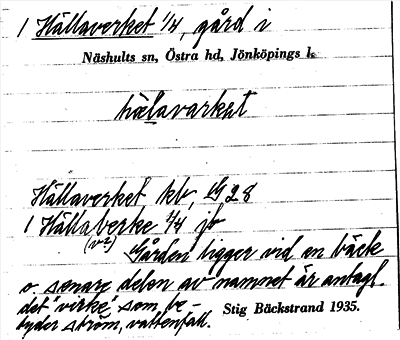 1 Hällaverket 1/4, gård i
Näshults sn, Östra hd, Jönköpings l.
hælavarkət
Hällaverket kb, G 28
1 Hällaberke 1/4 jb
(v?)
Gården ligger vid en bäck
o. senare delen av namnet är antagl.
det "virke" som be-
tyder ström, vattenfall.
Stig Bäckstrand 1935.